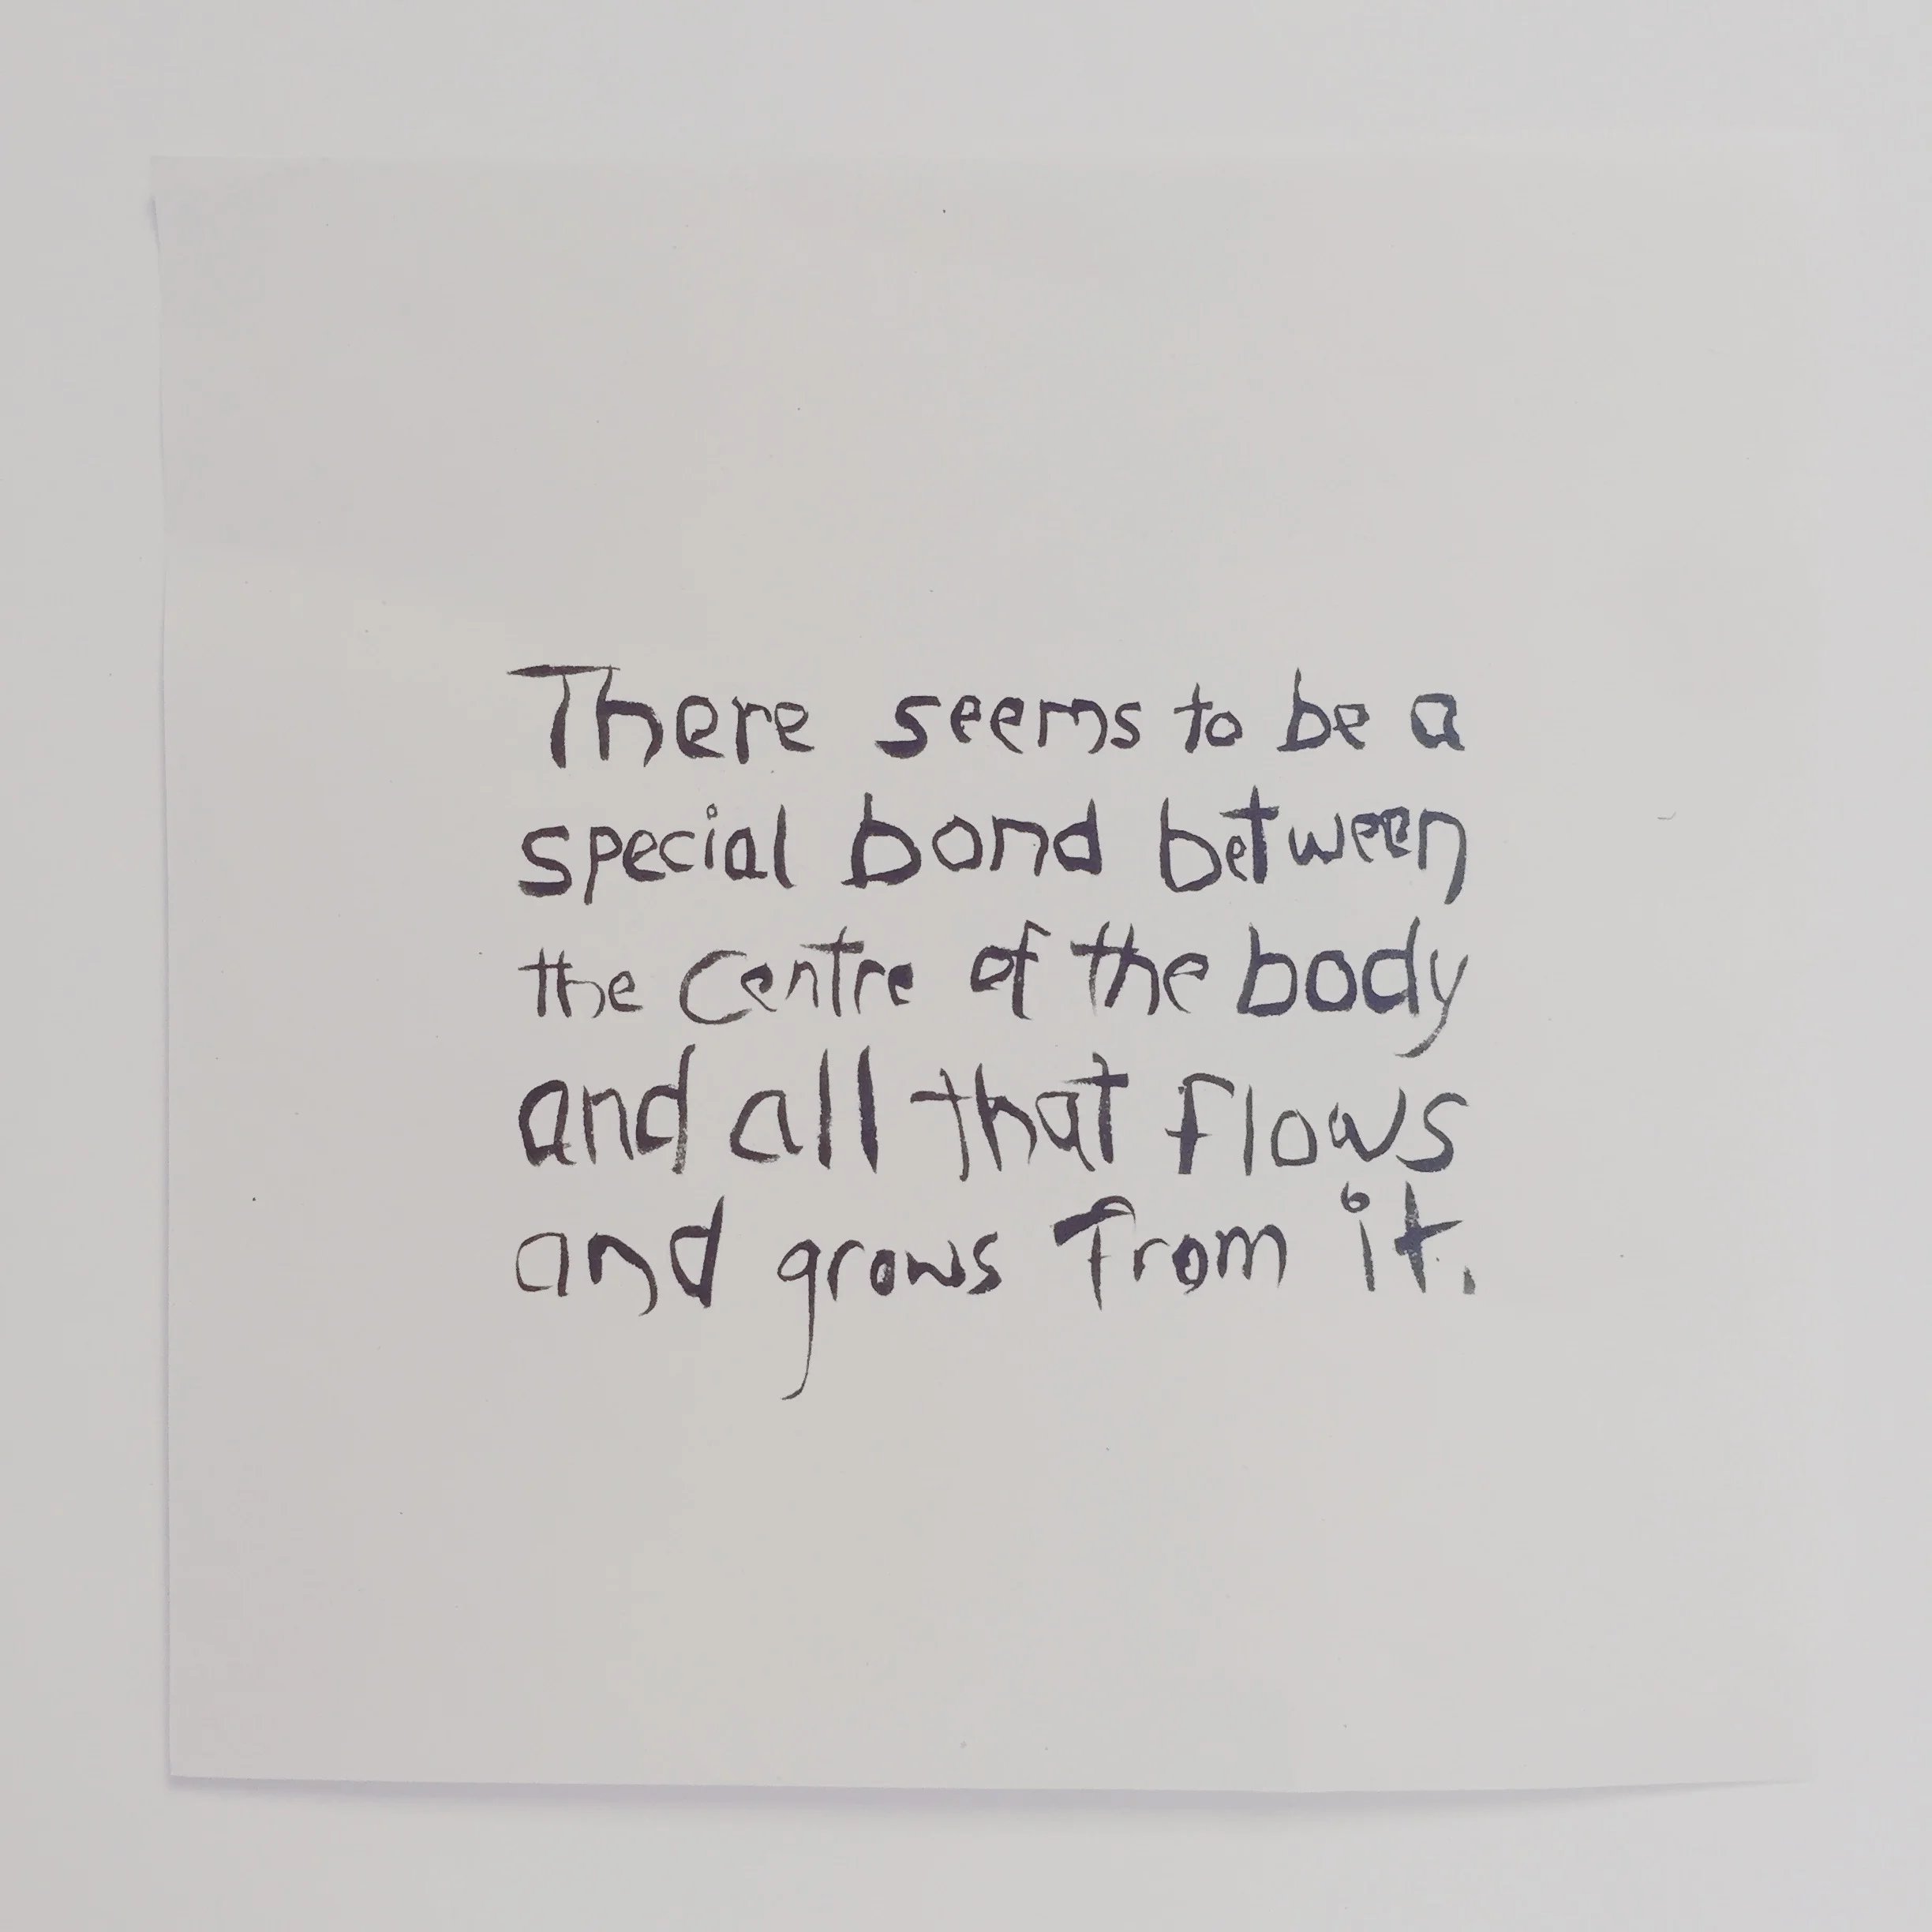 There seems to be a
special bond between
the centre of the body
and all that flows
and grows from it.